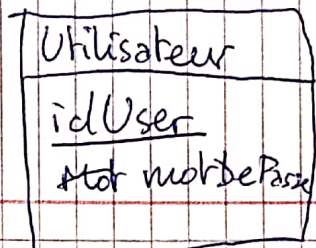 Utilisateur
idUser
motDePasse